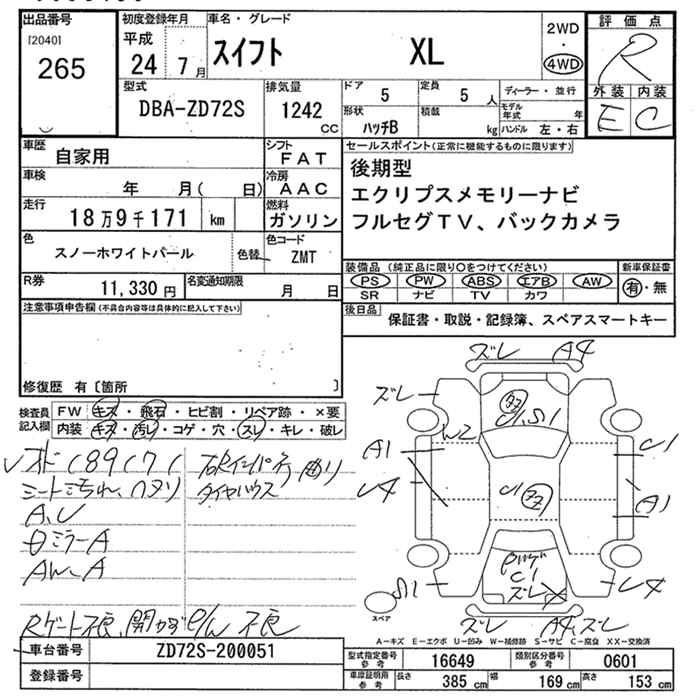 出品番号
[2040]
265
初度登録年月
平成
24年 7月
車名・グレード
スイフト XL
2WD
・
4WD
評価点
R
外装 内装
E C
型式
DBA-ZD72S
排気量
1242
CC
ドア
5
定員
5 人
ディーラー・並行
形状
ハッチB
積載
kg
モデル年式 年
ハンドル 左・右
車歴
自家用
シフト
FAT
車検
年 月( 日)
冷房
AAC
走行
18万9千171 km
燃料
ガソリン
色
スノーホワイトパール
色替
色コード
ZMT
R券
11,330 円
名変通知期限
月 日
セールスポイント(正常に機能するものに限ります)
後期型
エクリプスメモリーナビ
フルセグTV、バックカメラ
装備品 (純正品に限り○をつけてください)
PS PW ABS エアB AW
SR ナビ TV カワ
新車保証書
有・無
後日品
保証書・取説・記録簿、スペアスマートキー
注意事項申告欄(不具合内容等は具体的に記入して下さい)
修復歴 有〔箇所 〕
検査員記入欄
FW キズ・飛石・ヒビ割・リペア跡・×要
内装 キズ・汚レ・コゲ・穴・スレ・キレ・破レ
189171
シートよごれ、ヘタリ
A、U
日ミラーA
AW、A
Rゲート不良、開かず P/W 不良
タイヤハウス
曲り
ズレ A4
ズレ
C1, S1
A1
W2
C1
U4
C1
A1
S1
C1
ズレ
U4
ズレ A4, ズレ
スペア
A-キズ E-エクボ U-凹み W-補修跡 S-サビ C-腐食 XX-交換済
車台番号
ZD72S-200051
登録番号
型式指定番号
参考
16649
類別区分番号
参考
0601
車庫証明用
参考
長さ
385 cm
幅
169 cm
高さ
153 cm